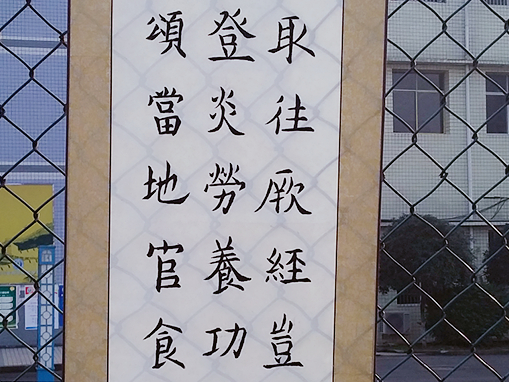 取往厥經豈
登炎勞養功
頌當地官食